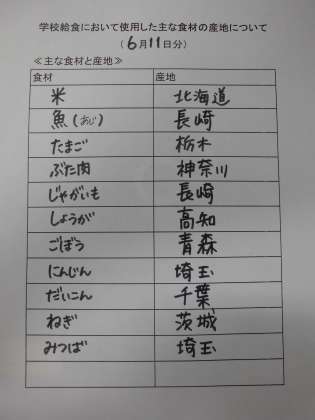 学校給食において使用した主な食材の産地について
(6月11日分)
≪主な食材と産地≫
食材 産地
米 北海道
魚(あじ) 長崎
たまご 栃木
ぶた肉 神奈川
じゃがいも 長崎
しょうが 高知
ごぼう 青森
にんじん 埼玉
だいこん 千葉
ねぎ 茨城
みつば 埼玉